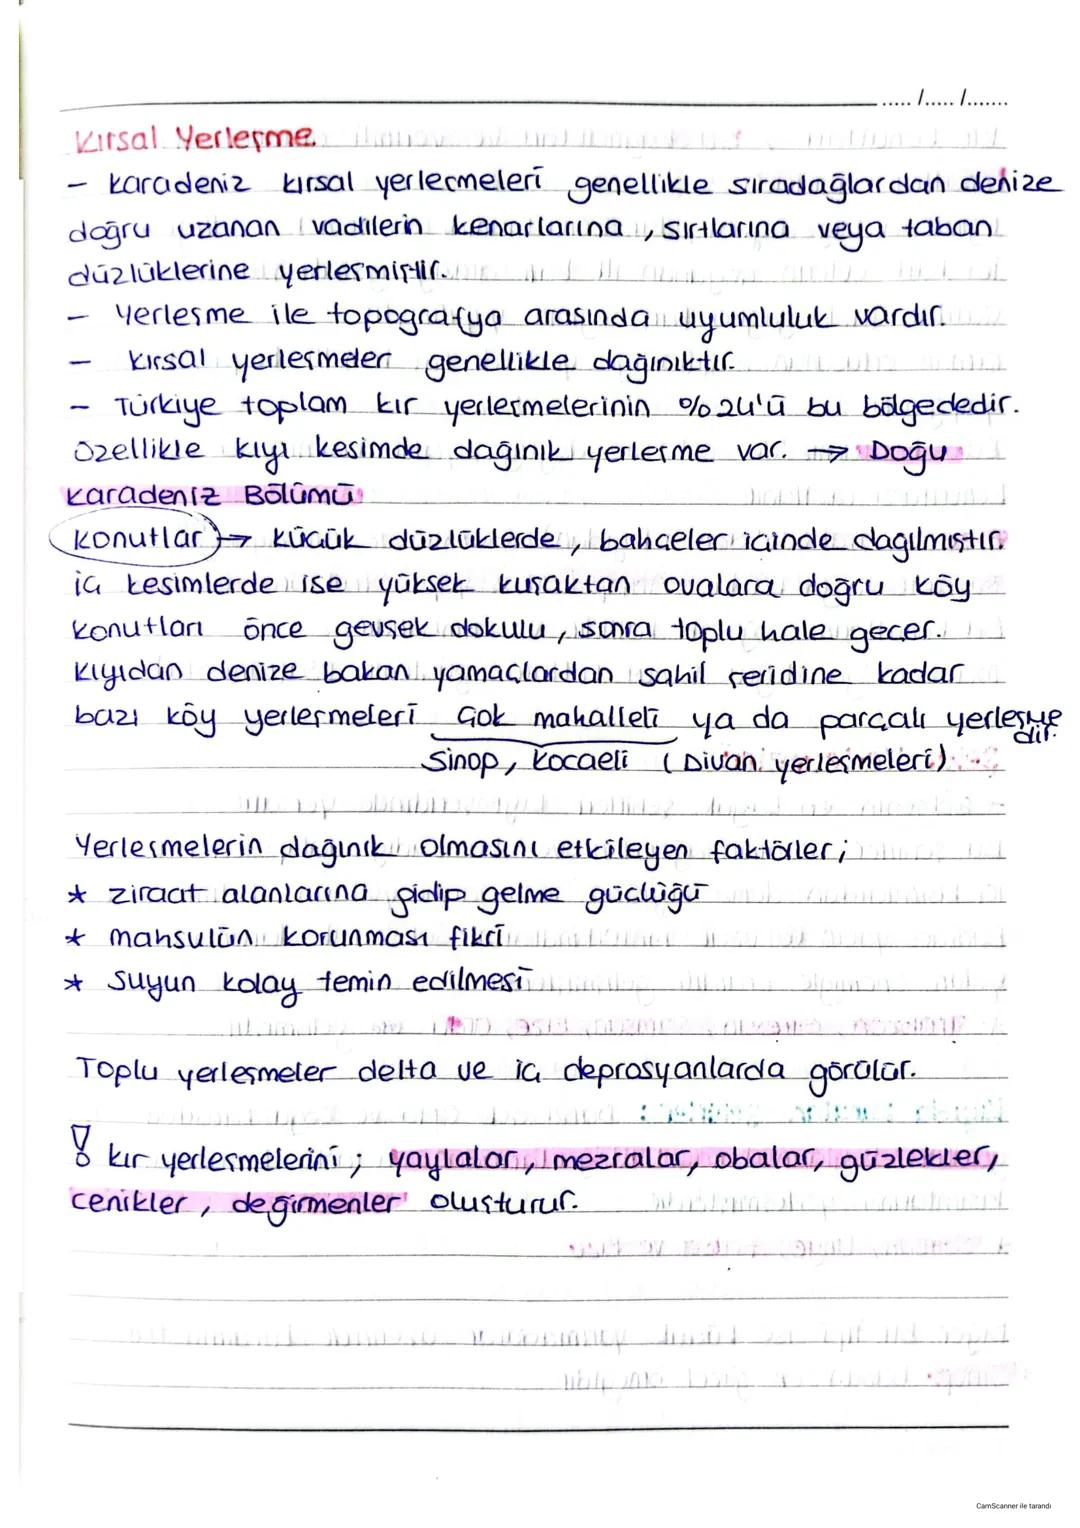 ...../...../.......
Kırsal Yerleşme
- Karadeniz kırsal yerleşmeleri genellikle sıradağlardan denize
doğru uzanan vadilerin kenarlarına, sırtlarına veya taban
düzlüklerine yerleşmiştir.
- Yerleşme ile topografya arasında uyumluluk vardır.
- Kırsal yerleşmeler genellikle dağınıktır.
- Türkiye toplam kır yerleşmelerinin %24'ü bu bölgededir.
Özellikle kıyı kesimde dağınık yerleşme var. → Doğu
Karadeniz Bölümü
Konutlar → küçük düzlüklerde, bahçeler içinde dağılmıştır.
iç kesimlerde ise yüksek kuşaktan ovalara doğru köy
konutları önce gevşek dokulu, sonra toplu hale geçer.
Kıyıdan denize bakan yamaçlardan sahil şeridine kadar
bazı köy yerleşmeleri çok mahalleli ya da parçalı yerleşme
dir.
Sinop, Kocaeli (Divan yerleşmeleri)
Yerleşmelerin dağınık olmasını etkileyen faktörler;
* ziraat alanlarına gidip gelme güçlüğü
* mahsulün korunması fikri
* suyun kolay temin edilmesi
Toplu yerleşmeler delta ve iç deprasyanlarda görülür.
! kır yerleşmelerini; yaylalar, mezralar, obalar, güzlekler,
cenikler, değirmenler oluşturur.
CamScanner ile tarandı